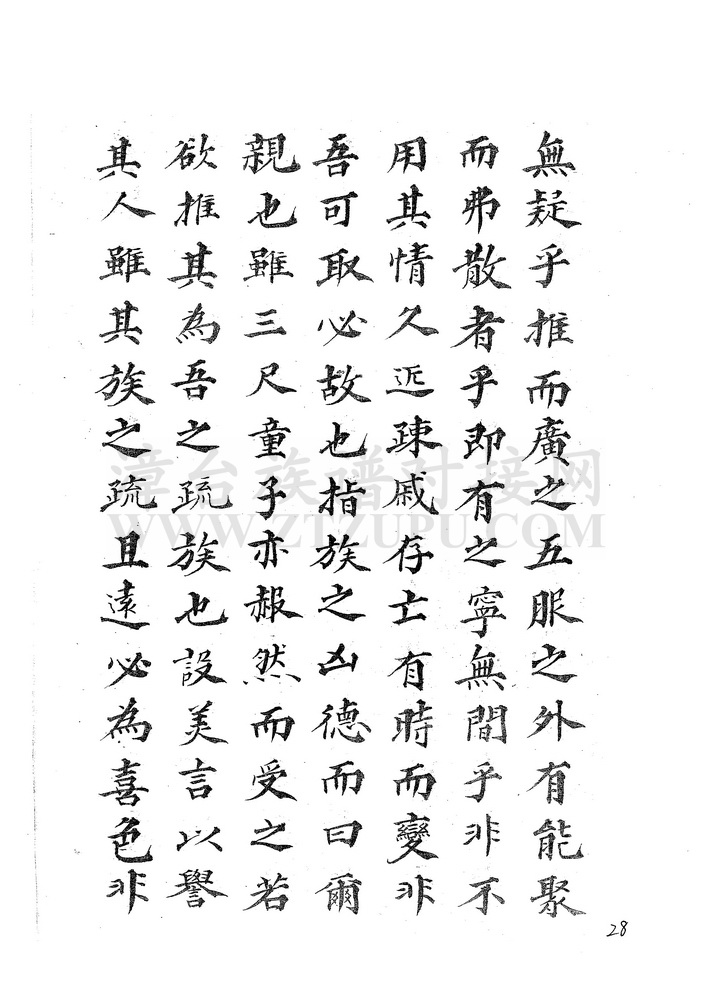 無疑乎推而廣之五服之外有能聚
而弗散者乎即有之寧無間乎非不
用其情久近疎戚存亡有時而變非
吾可取必故也指族之凶德而曰爾
親也雖三尺童子亦赧然而受之若
欲推其為吾之疏族也設美言以譽
其人雖其族之疏且遠必為喜色非
漳台族谱对接网
WWW.ZTZUPU.COM
28